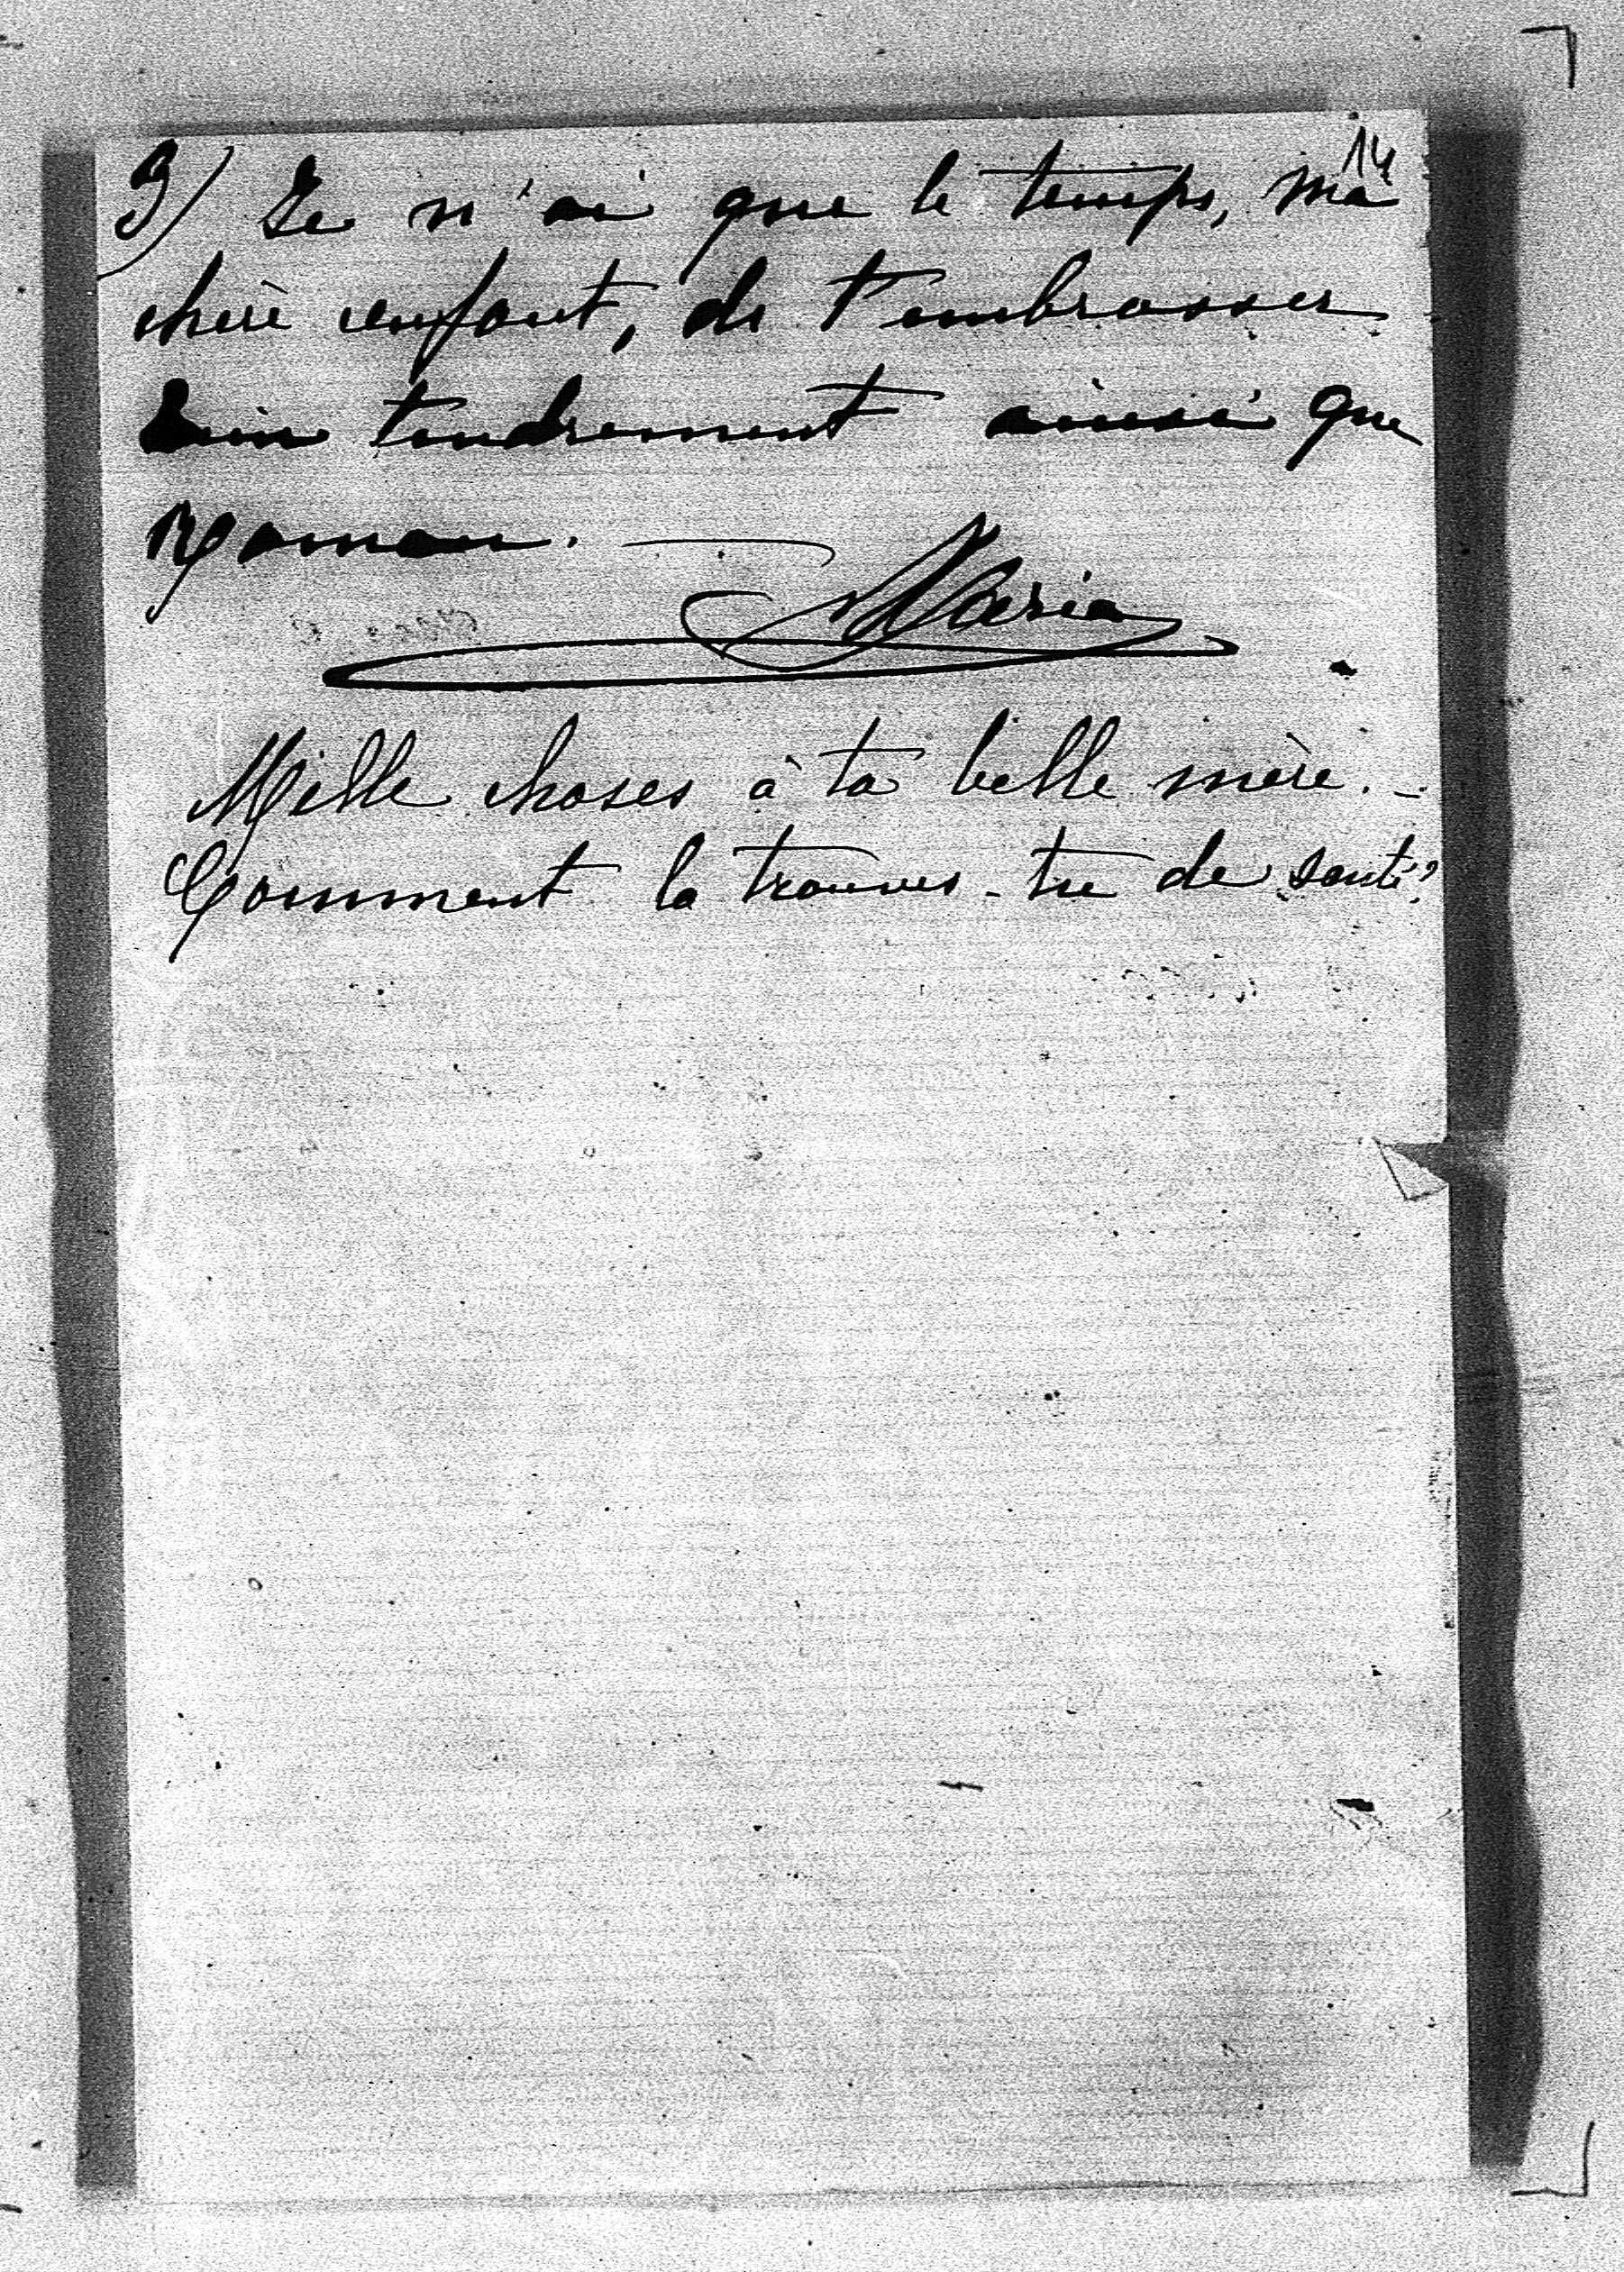 14
3) Je n'ai que le temps, ma
chère enfant, de t'embrasser
bien tendrement ainsi que
Roman.
Maria
Mille choses à ta belle mère. –
Comment la trouves-tu de santé?